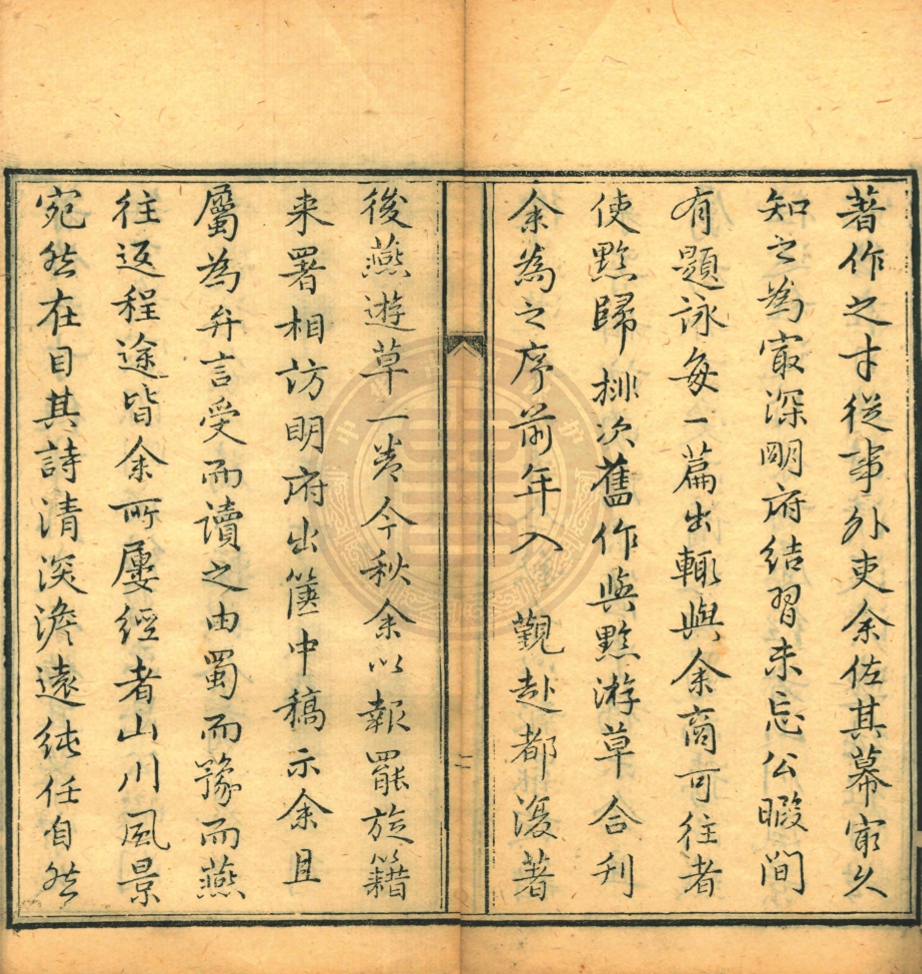 著作之才從事外吏余佐其幕㝡久
知之為㝡深明府結習未忘公暇間
有題詠每一篇出輒與余商可往者
使黔歸排次舊作與黔游草合刋
余為之序前年入　覲赴都復著
二
後燕遊草一卷今秋余以報罷旋籍
来署相訪明府出篋中稿示余且
屬為弁言受而讀之由蜀而豫而燕
往返程途皆余所屢經者山川風景
宛然在目其詩清淡澹遠純任自然